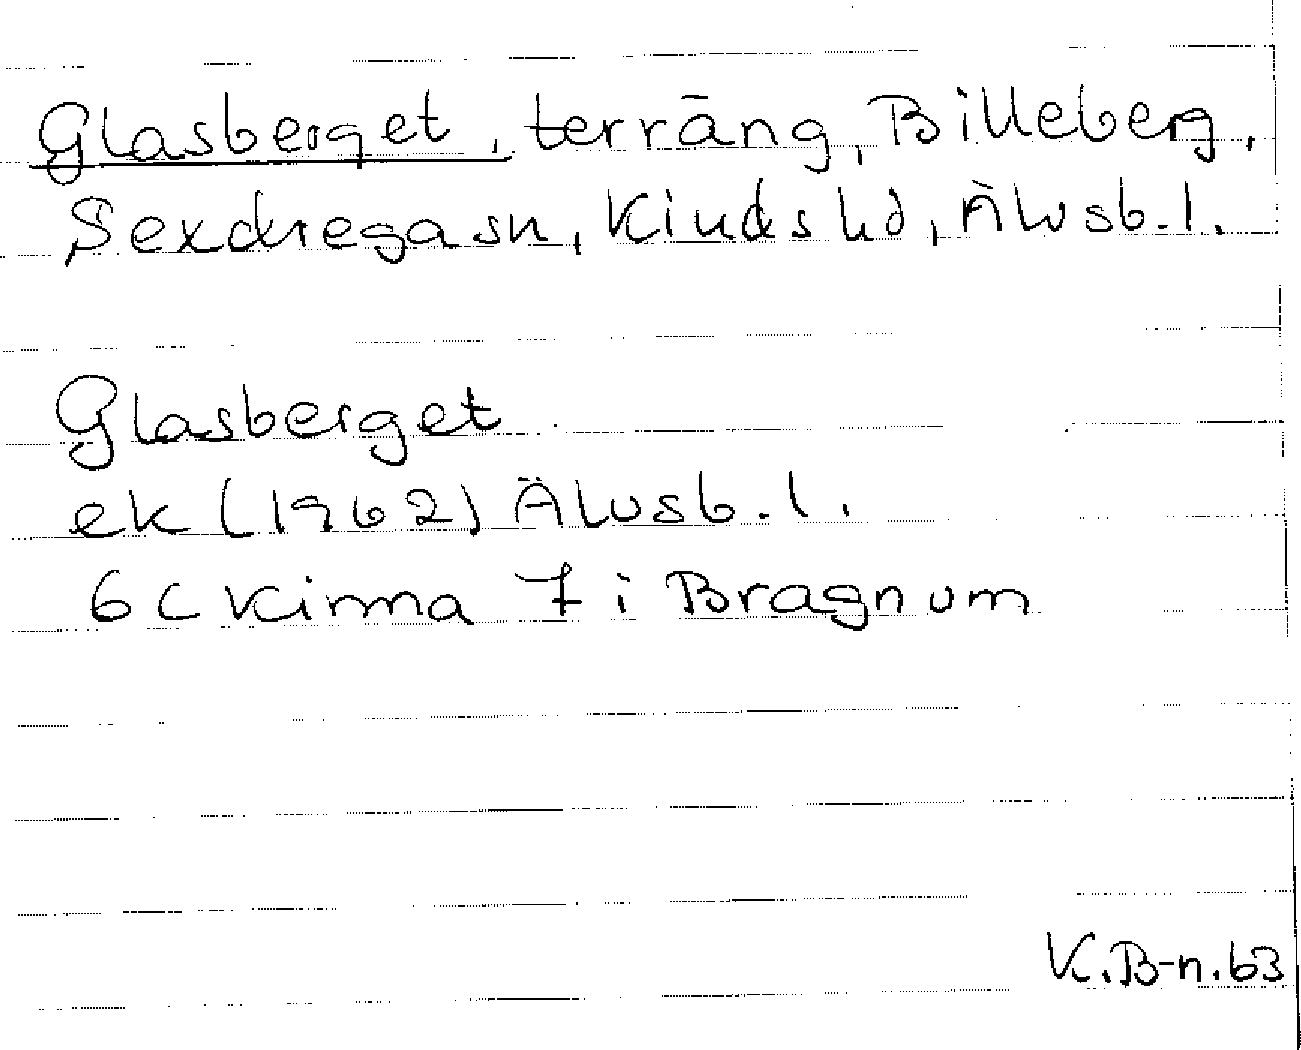 Glasberget, terräng, Billeberg,
Sexdrega sn, Kinds hd, Älvsb. l.
Glasberget
ek (1962) Älvsb. l.
6C Kinna 7 i Bragnum
K.B-n. 63